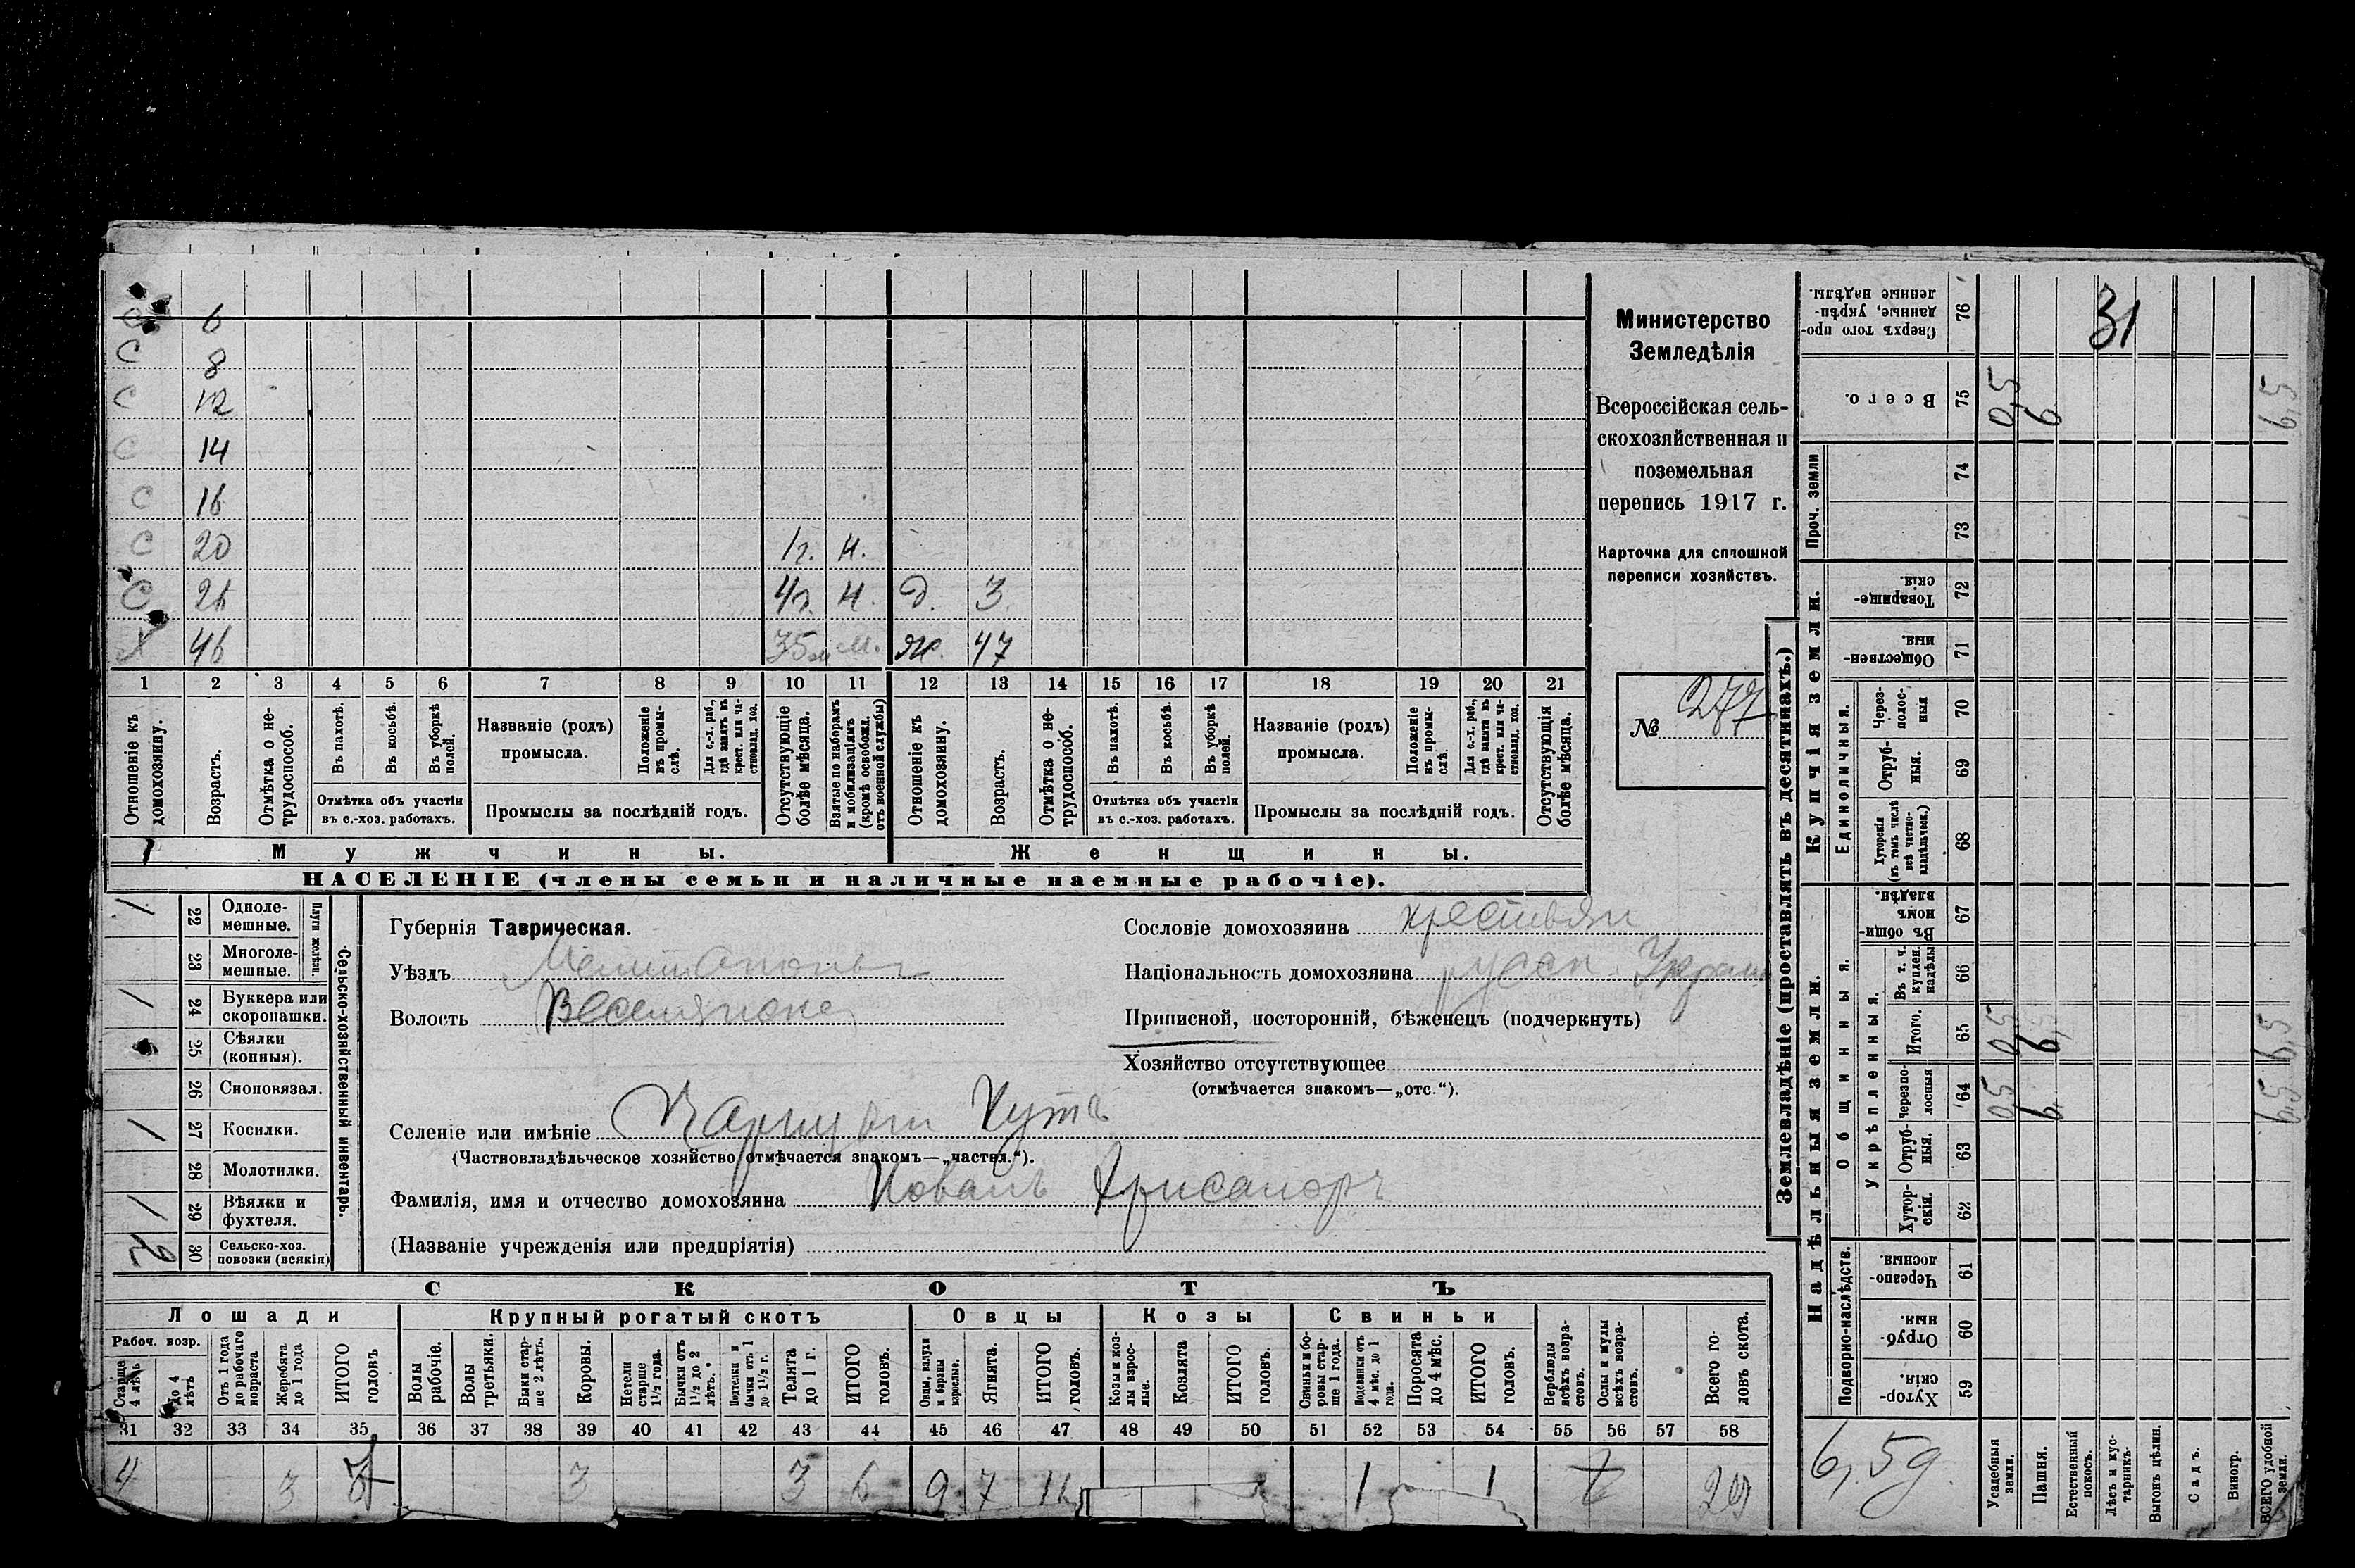 С 6
С 8
С 12
С 14
С 16
С 20 1 г. н.
С 4 г. н. д. 3
Х 46 м. ж. 47
1 2 3 4 5 6 7 8 9 10 11 12 13 14 15 16 17 18 19 20 21
Отношеніе къ домохозяину.
Возрастъ.
Отмѣтка о не-трудоспособ.
Въ пахотѣ.
Въ косьбѣ.
Въ уборкѣ полей.
Отмѣтка объ участіи
въ с.-хоз. работахъ.
Названіе (родъ)
промысла.
Положеніе въ промы-слѣ.
Для с.-х. раб., гдѣ занятъ въ крест. или ча-стновлад. хоз.
Промыслы за послѣдній годъ.
Отсутствующіе болѣе мѣсяца.
Взятые по наборамъ и мобилизаціямъ (кромѣ освобожд. отъ военной службы)
Отношеніе къ домохозяину.
Возрастъ.
Отмѣтка о не-трудоспособ.
Въ пахотѣ.
Въ косьбѣ.
Въ уборкѣ полей.
Отмѣтка объ участіи
въ с.-хоз. работахъ.
Названіе (родъ)
промысла.
Положеніе въ промы-слѣ.
Для с.-х. раб., гдѣ занятъ въ крест. или ча-стновлад. хоз.
Промыслы за послѣдній годъ.
Отсутствующія болѣе мѣсяца.
Мужчины. Женщины.
НАСЕЛЕНІЕ (члены семьи и наличные наемные рабочіе).
Министерство
Земледѣлія
Всероссійская сель-
скохозяйственная и
поземельная
перепись 1917 г.
Карточка для сплошной
переписи хозяйствъ.
№ 277
1 22 Однолемешные.
23 Многолемешные.
Плуги желѣзн.
1 24 Буккера или скоропашки.
25 Сѣялки (конныя).
26 Сноповязал.
1 27 Косилки.
28 Молотилки.
1 29 Вѣялки и фухтеля.
2 30 Сельско-хоз. повозки (всякія)
Сельско-хозяйственный инвентарь.
Губернія Таврическая.
Уѣздъ
Волость
Селеніе или имѣніе Чаргцын Кутъ
(Частновладѣльческое хозяйство отмѣчается знакомъ—„частвл.“).
Фамилія, имя и отчество домохозяина
(Названіе учрежденія или предпріятія)
Сословіе домохозяина крестьян
Національность домохозяина русск. Украин
Приписной, посторонній, бѣженецъ (подчеркнуть)
Хозяйство отсутствующее
(отмѣчается знакомъ—„отс.“).
СКОТЪ
Лошади Крупный рогатый скотъ Овцы Козы Свиньи
Рабоч. возр.
Старше 4 лѣтъ
до 4 лѣтъ
Отъ 1 года до рабочаго возраста
Жеребята до 1 года
ИТОГО головъ
Волы рабочіе.
Волы третьяки.
Быки стар-ше 2 лѣтъ.
Коровы.
Нетели старше 1½ года.
Бычки отъ 1½ до 2 лѣтъ.
Подтелки и бычки отъ 1 до 1½ г.
Телята до 1 г.
ИТОГО головъ.
Овцы, валухи и бараны взрослые.
Ягнята.
ИТОГО головъ.
Козы и коз-лы взрос-лые.
Козлята
ИТОГО головъ.
Свиньи и бо-ровы стар-ше 1 года.
Подсвинки отъ 4 мѣс. до 1 года.
Поросята до 4 мѣс.
ИТОГО головъ.
Верблюды всѣхъ возра-стовъ.
Ослы и мулы всѣхъ возра-стовъ.
Всего го-ловъ скота.
31 32 33 34 35 36 37 38 39 40 41 42 43 44 45 46 47 48 49 50 51 52 53 54 55 56 57 58
4 3 7 3 3 6 9 7 16 1 1
Землевладѣніе (проставлять въ десятинахъ.)
Надѣльныя земли. Купчія земли. Проч. земли
Подворно-наслѣдств.
Общинныя.
Укрѣпленныя.
Единоличныя.
Сверхъ того про-данные, укрѣп-ленные надѣлы. 76 31
Всего. 75 0,5 6 6,5
74
73
Товарище-скія. 72
Обществен-ныя. 71
Через-полос-ныя 70
Отруб-ныя. 69
Хуторскія (въ томъ числѣ всѣ частно-владѣльческ.) 68
Въ общин-номъ владѣн. 67
Въ т. ч. куплен. надѣлы 66
Итого. 65 0,5 6 6,5
Черезпо-лосныя 64 0,5 6 6,5
Отруб-ныя. 63
Хутор-скія. 62
Черезпо-лосныя. 61
Отруб-ныя. 60
Хутор-скія. 59
6,5 д.
Усадебныя земли.
Пашня.
Естественный покосъ.
Лѣсъ и кус-тарникъ.
Выгонъ цѣлин.
Садъ.
Виногр.
ВСЕГО удобной земли.